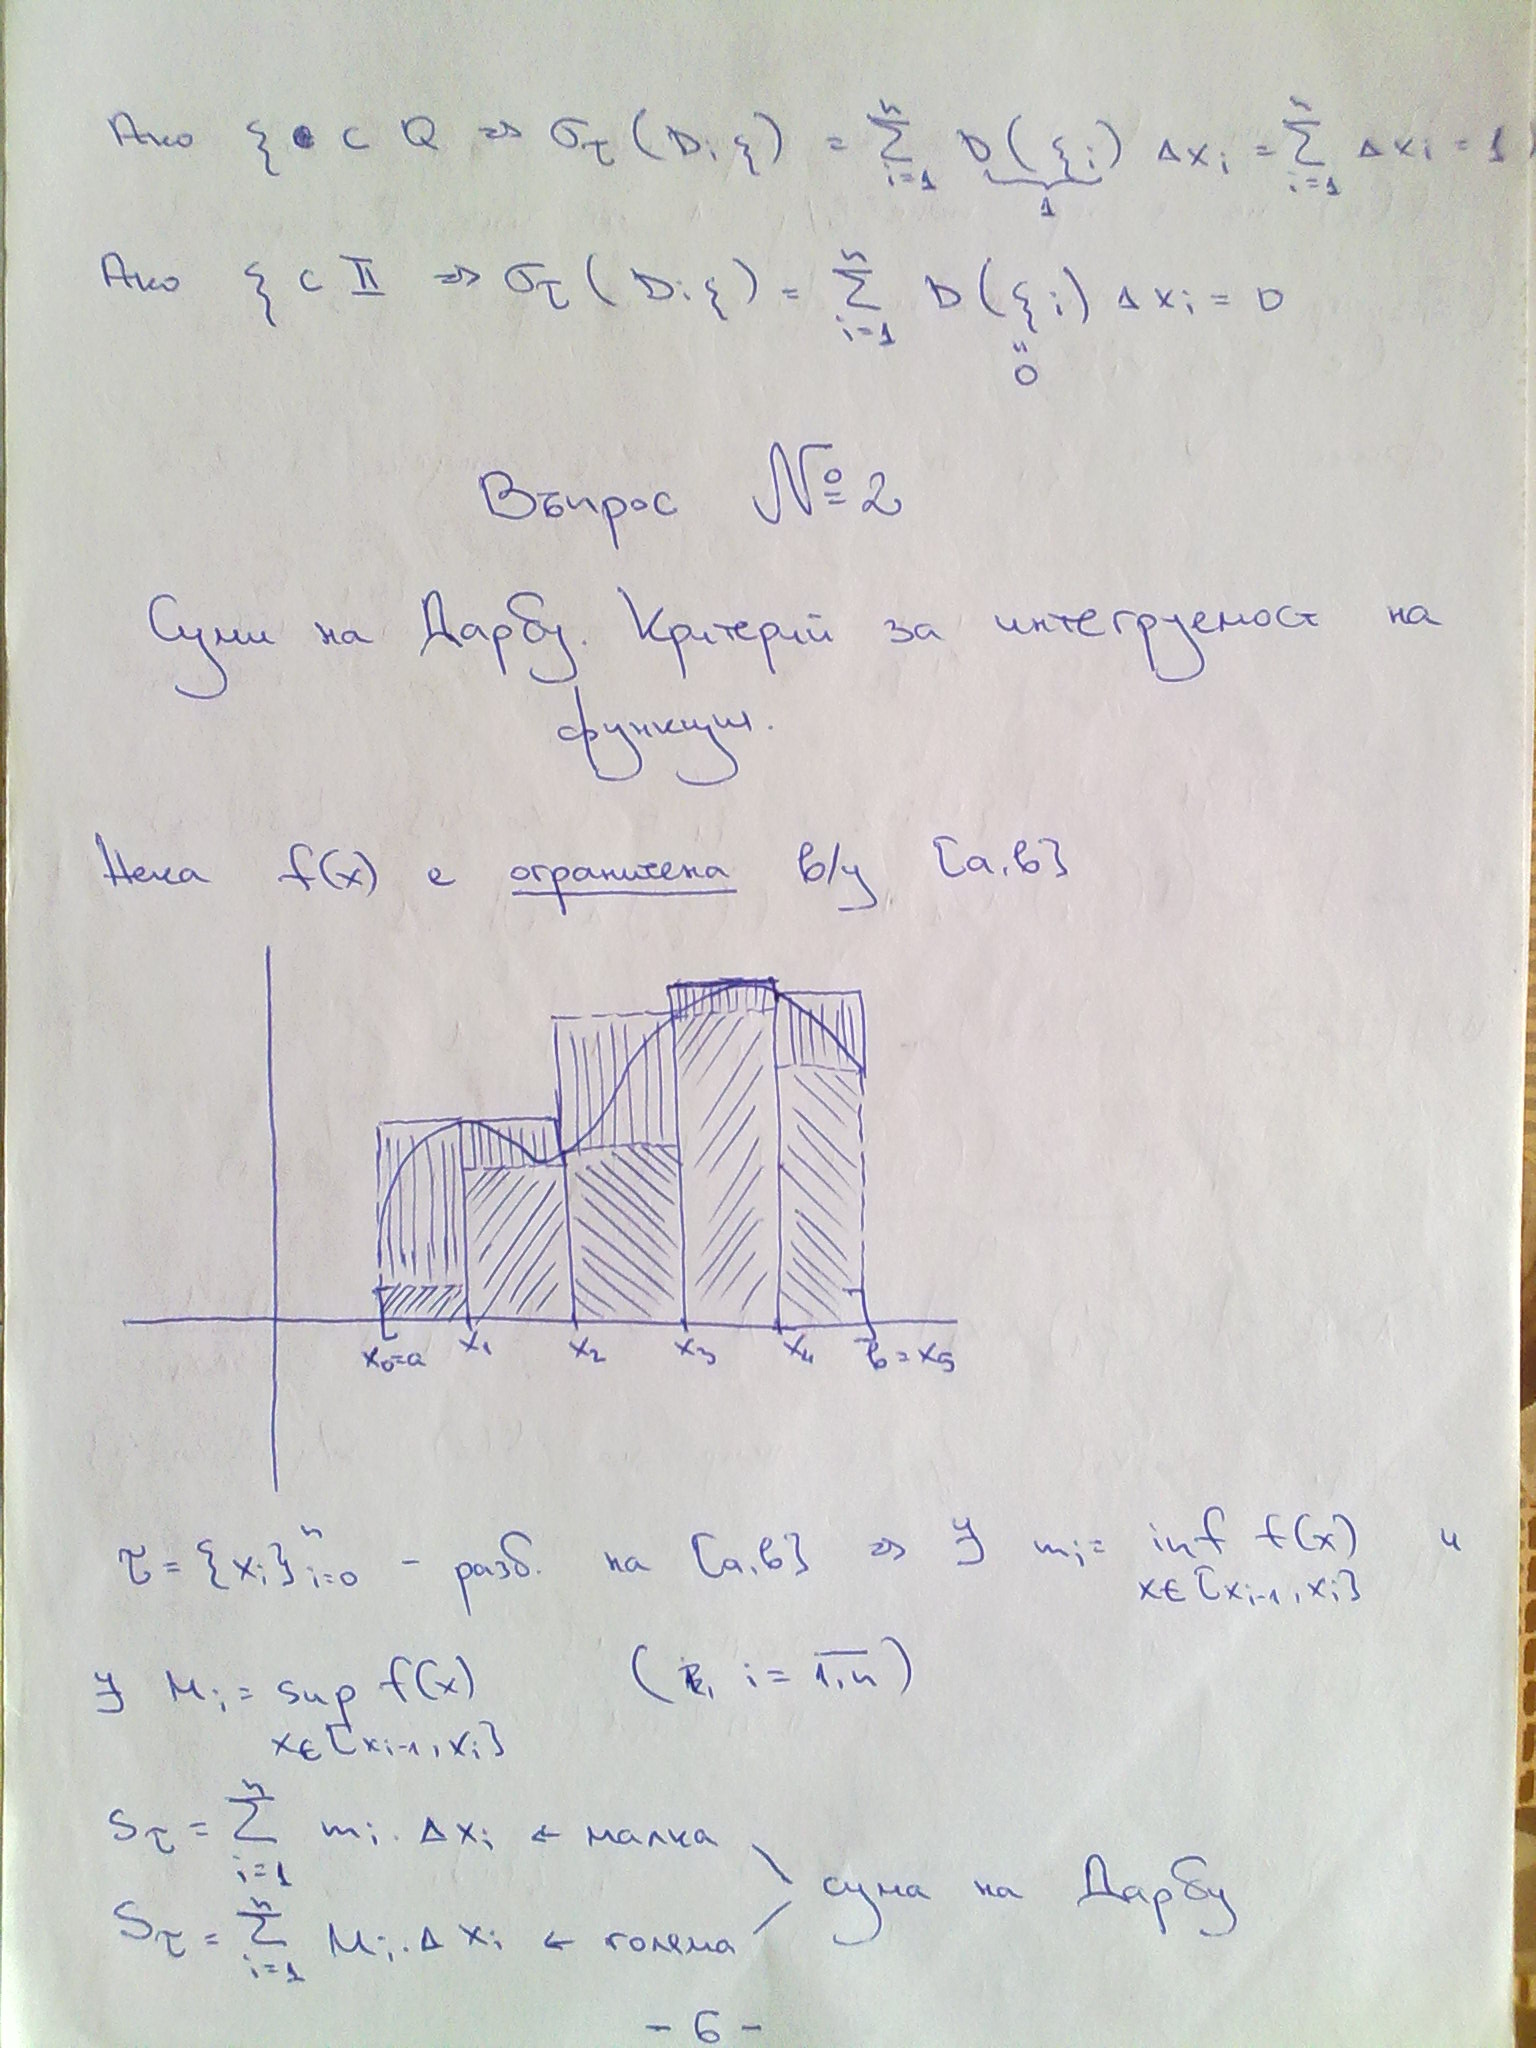 Ако ξ ⊂ Q ⇒ στ(D; ξ) = Σ_{i=1}^{n} D(ξi) Δxi = Σ_{i=1}^{n} Δxi = 1
1
Ако ξ ⊂ II ⇒ στ(D; ξ) = Σ_{i=1}^{n} D(ξi) Δxi = 0
"
0
Въпрос № 2
Суми на Дарбу. Критерий за интегруемост на
функции.
Нека f(x) е ограничена в/у [a,b]
x0=a x1 x2 x3 x4 b=x5
τ = {xi}_{i=0}^{n} - разб. на [a,b] ⇒ ∃ mi = inf f(x) и
x∈[xi-1, xi]
∃ Mi = sup f(x) ( i = 1,n )
x∈[xi-1, xi]
sτ = Σ_{i=1}^{n} mi. Δxi ← малка
сума на Дарбу
Sτ = Σ_{i=1}^{n} Mi. Δxi ← голяма
- 6 -